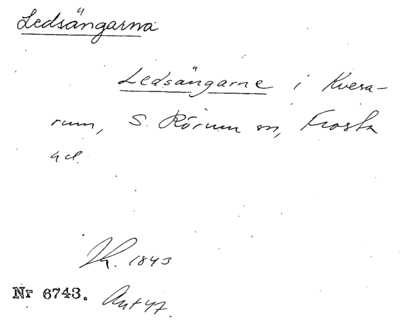 Ledsängarna
Ledsängarne i Kvesa-
rum, S. Rörum sn, Frosta
hd.
Lk. 1843
Nr 6743. Avt 47.